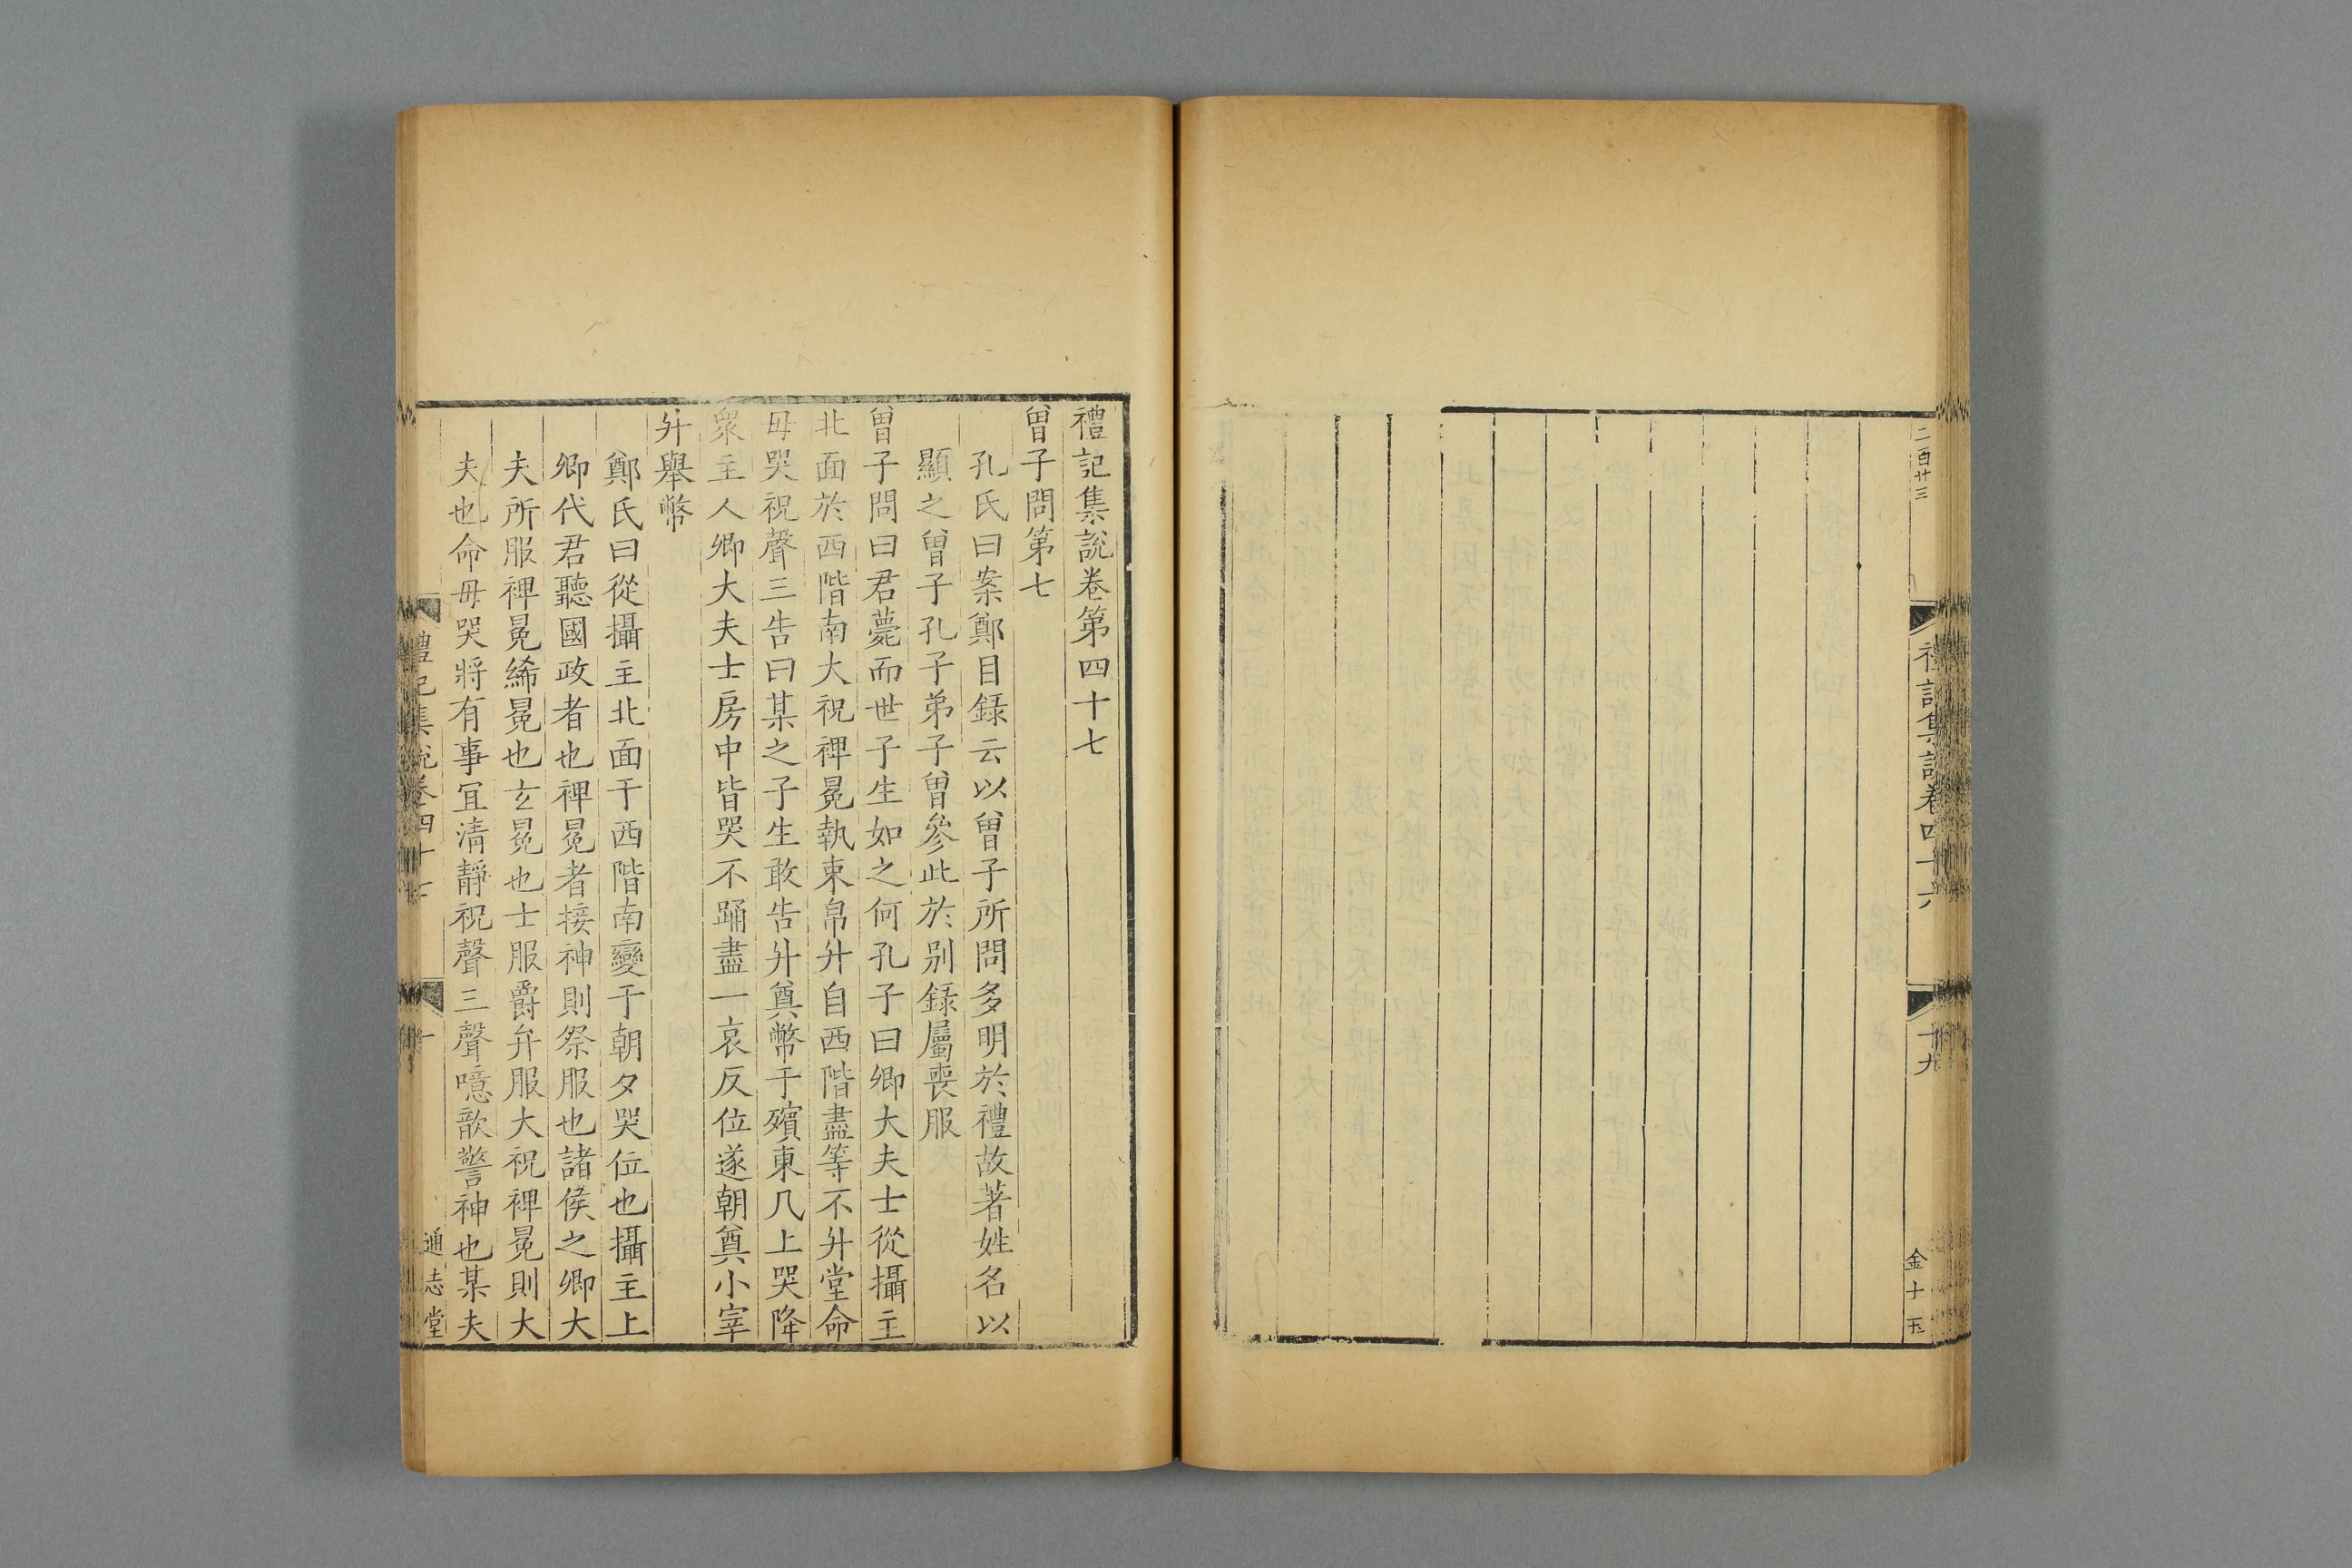 二百廿三
禮記集說卷四十六
十九
金士玉
禮記集說卷第四十七
曾子問第七
孔氏曰案鄭目錄云以曾子所問多明於禮故著姓名以
顯之曾子孔子弟子曾參此於别錄屬喪服
曾子問曰君薨而世子生如之何孔子曰卿大夫士從攝主
北面於西階南大祝裨冕執束帛升自西階盡等不升堂命
毋哭祝聲三告曰某之子生敢告升奠幣于殯東几上哭降
衆主人卿大夫士房中皆哭不踊盡一哀反位遂朝奠小宰
升舉幣
鄭氏曰從攝主北面于西階南變于朝夕哭位也攝主上
卿代君聽國政者也裨冕者接神則祭服也諸侯之卿大
夫所服裨冕絺冕也玄冕也士服爵弁服大祝裨冕則大
夫也命毋哭將有事冝清靜祝聲三聲噫歆警神也某夫
禮記集說卷四十七
一
通志堂